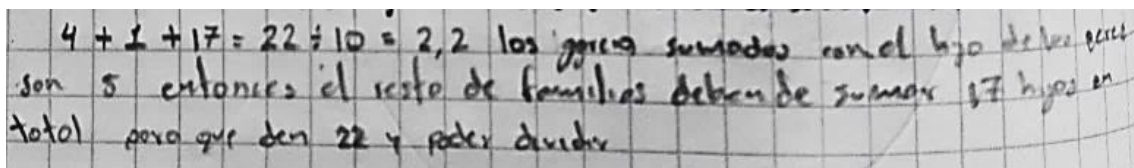 4 + 1 + 17 = 22 ÷ 10 = 2,2 los garcia sumados con el hijo de los perez
son 5 entonces el resto de familias deben de sumar 17 hijos en
total para que den 22 y poder dividir